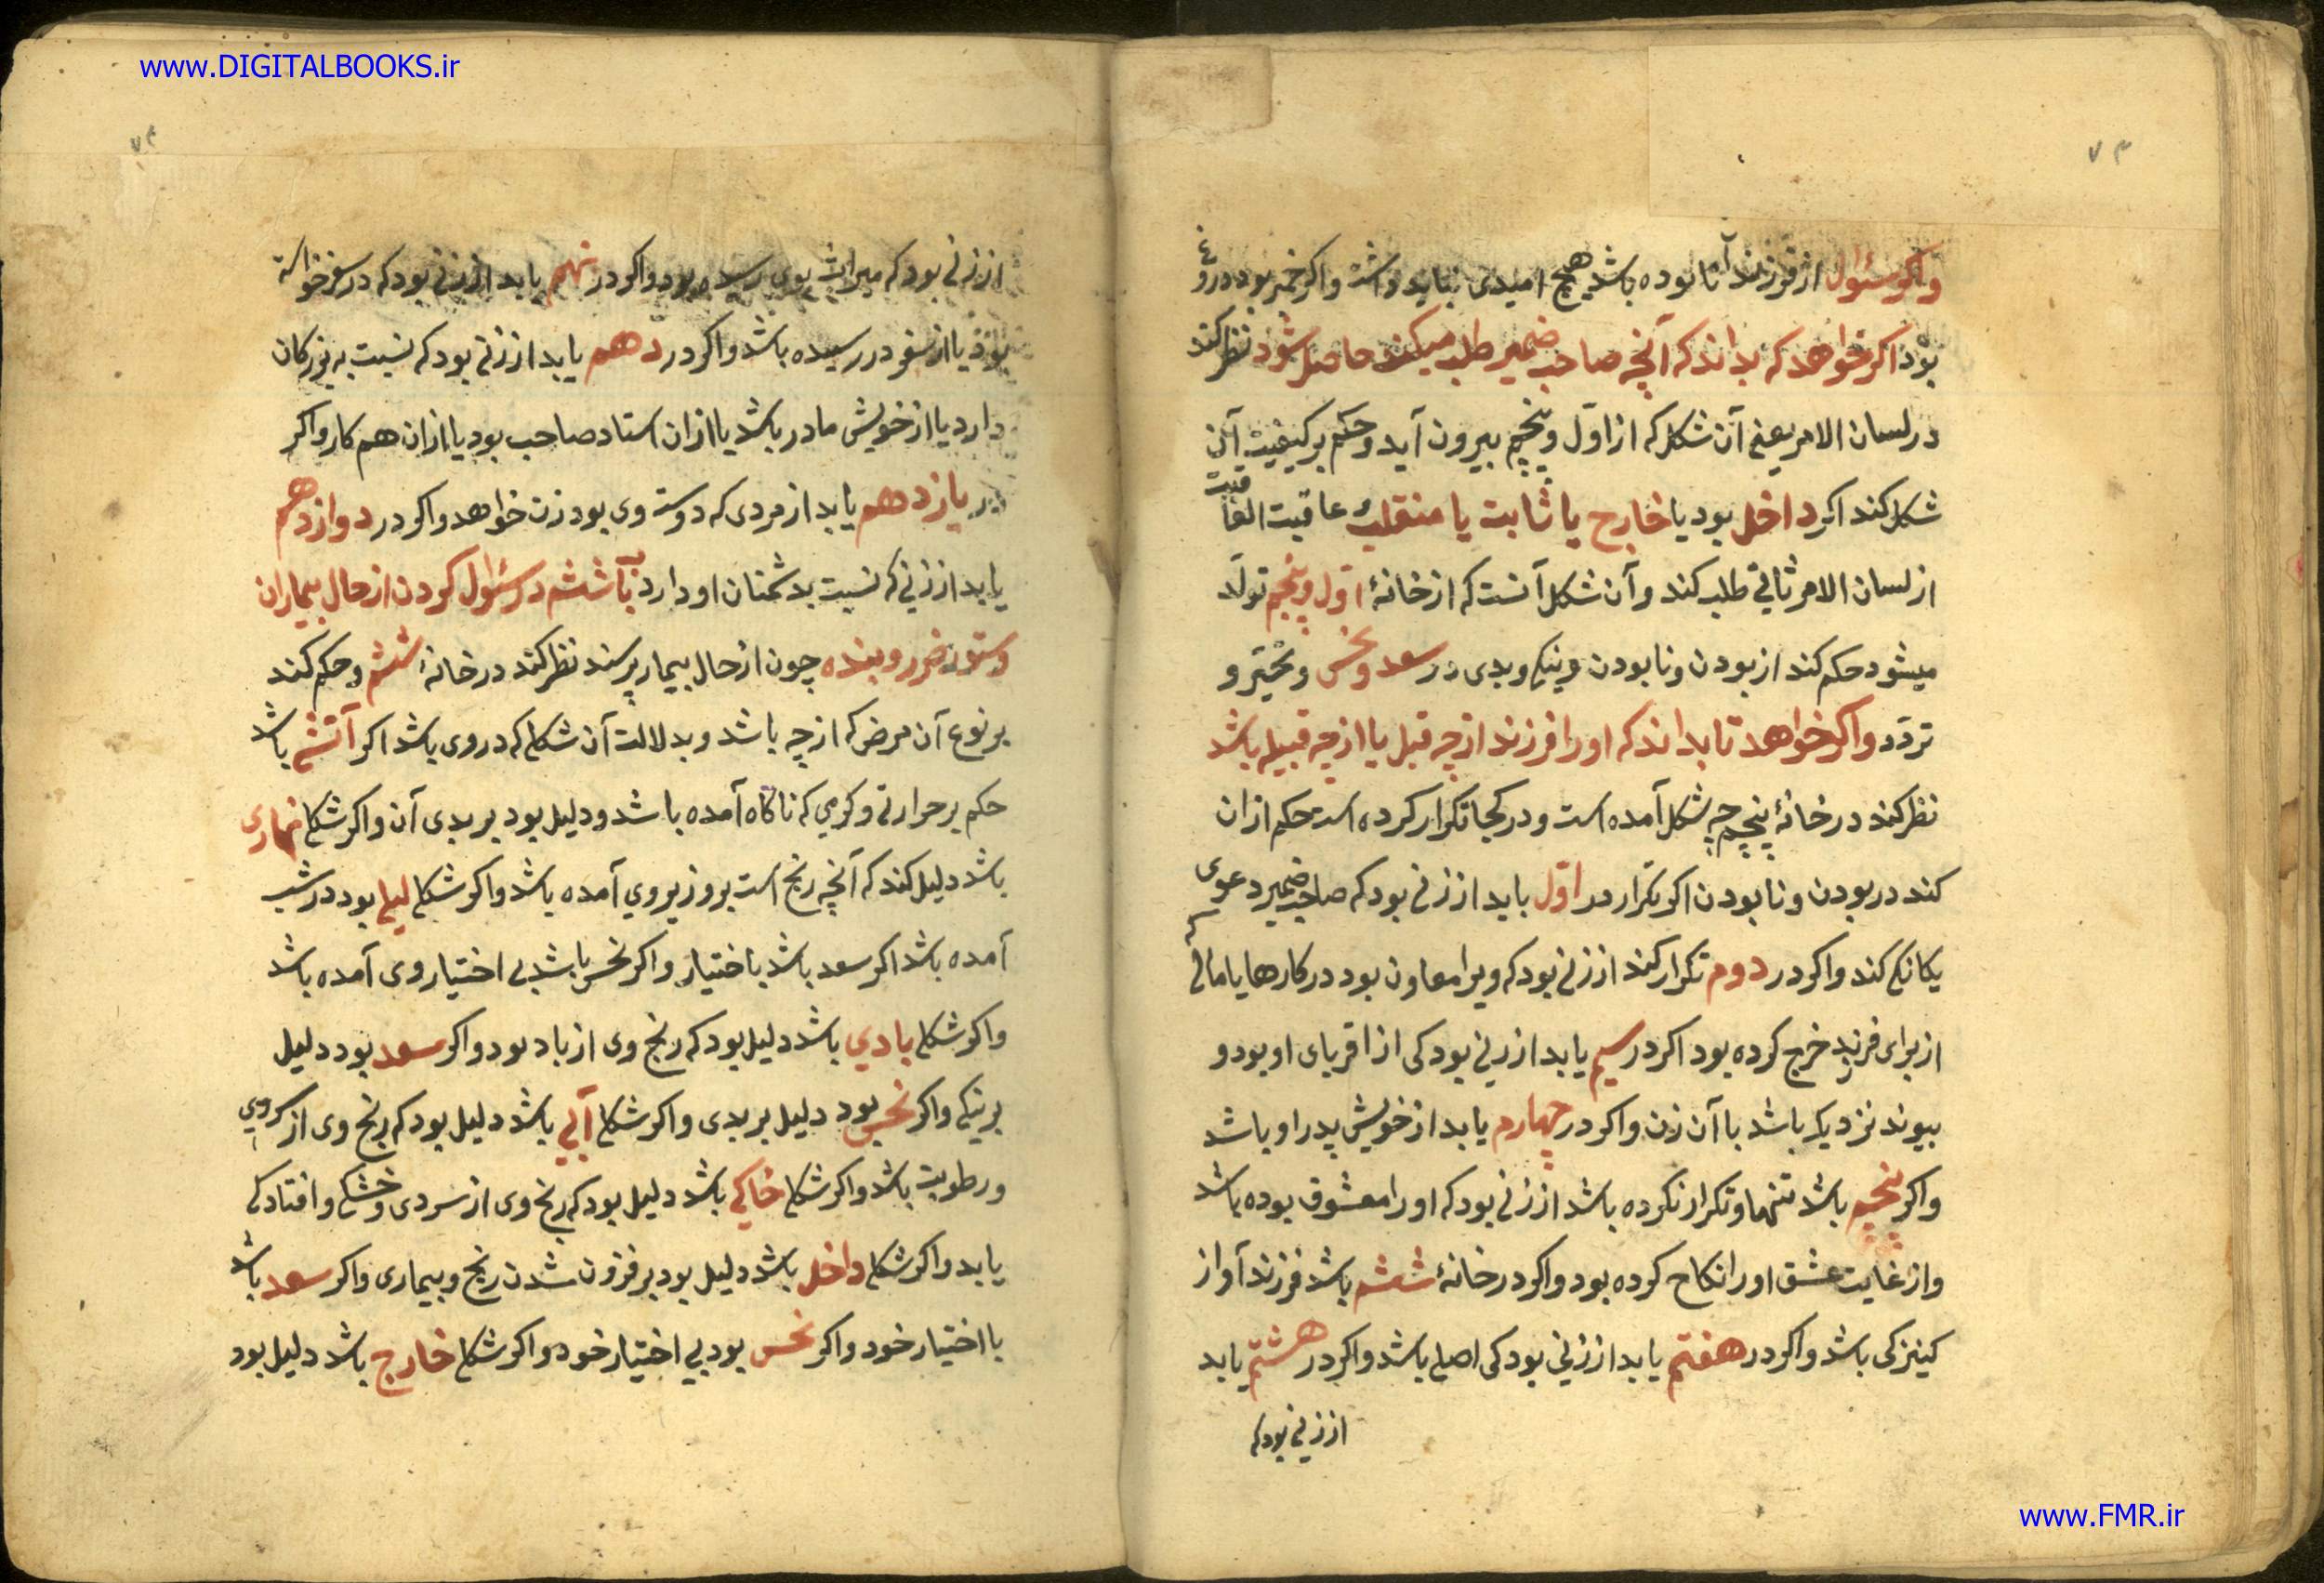 www.DIGITALBOOKS.ir
۷۳
واکر سئوال از فرزند آنا بوده باشد هیچ امیدی نباید داشت واکر خیر بود دروغ
بود اکر خواهد که بداند که آنچه صاحب ضمیر طلب میکند حاصل شود نظر کند
در لسان الامر یعنی آن شکل که از اول و پنجم بیرون آید و حکم بر کیفیت آن
شکل کند اکر داخل بود یا خارج یا ثابت یا منقلب و عاقبت العاقبت
از لسان الامر ثانی طلب کند وآن شکل آنست که از خانهٔ اول و پنجم تولّد
میشود حکم کند از بودن ونابودن ونیکی وبدی در سعد ونحس و تحیّر و
تردّد واکر خواهد تا بداند که او را فرزند از چه قبل یا از چه قبیله باشد
نظر کند در خانهٔ پنجم چه شکل آمده است ودر کجا تکرار کرده است حکم ازان
کند در بودن ونابودن اکر تکرار در اوّل یابد از زنی بود که صاحب ضمیر دعوی
یکانکی کند واکر در دوم تکرار کند از زنی بود که ویرا معاون بود در کارها یا مالی که
از برای فرزند خرج کرده بود اکر در سیم یابد از زنی بود کی از اقربای او بود و
پیوند نزدیک باشد با آن زن واکر در چهارم یابد از خویش پدر او باشد
واکر پنجم باشد تنها وتکرار نکرده باشد از زنی بود که او را معشوق بوده باشد
واز غایت عشق او را نکاح کرده بود واکر در خانهٔ ششم باشد فرزند آواز
کنیزکی باشد واکر در هفتم یابد از زنی بود کی اصلی باشد واکر در هشتم یابد
از زنی بود که
۷۴
از زنی بود که میراث بوی رسیده بود واکر در نهم یابد از زنی بود که در سفر خواسته
بود یا از سفر در رسیده باشد واکر در دهم یابد از زنی بود که نسبت به بزرکان
دارد یا از خویش مادر باشد یا ازان استاد صاحب بود یا ازان هم کار واکر
در یازدهم یابد از مردی که دوست وی بود زن خواهد واکر در دوازدهم
یابد از زنی که نسبت بدشمنان او دارد باب ششم در سئوال کردن از حال بیماران
وستور ضرر وبنده چون از حال بیمار پرسند نظر کند در خانهٔ ششم و حکم کند
بر نوع آن مرض که از چه باشد وبدلالت آن شکلی که در وی باشد اکر آتشی باشد
حکم بر حرارتی وکرمی که ناکاه آمده باشد ودلیل بود بر بدی آن واکر شکل نهاری
باشد دلیل کند که آنچه رنج است بروز بروی آمده باشد واکر شکل لیلی بود در شب
آمده باشد اکر سعد باشد باختیار واکر نحس باشد بی اختیار وی آمده باشد
واکر شکل بادی باشد دلیل بود که رنج وی از باد بود واکر سعد بود دلیل
بر نیکی واکر نحس بود دلیل بر بدی واکر شکل آبی باشد دلیل بود که رنج وی از کرمی
ورطوبت باشد واکر شکل خاکی باشد دلیل بود که رنج وی از سردی و خشکی وافتادکی
یابد واکر شکل داخل باشد دلیل بود بر فزون شدن رنج وبیماری واکر سعد باشد
با اختیار خود واکر نحس بود بی اختیار خود واکر شکل خارج باشد دلیل بود
www.FMR.ir